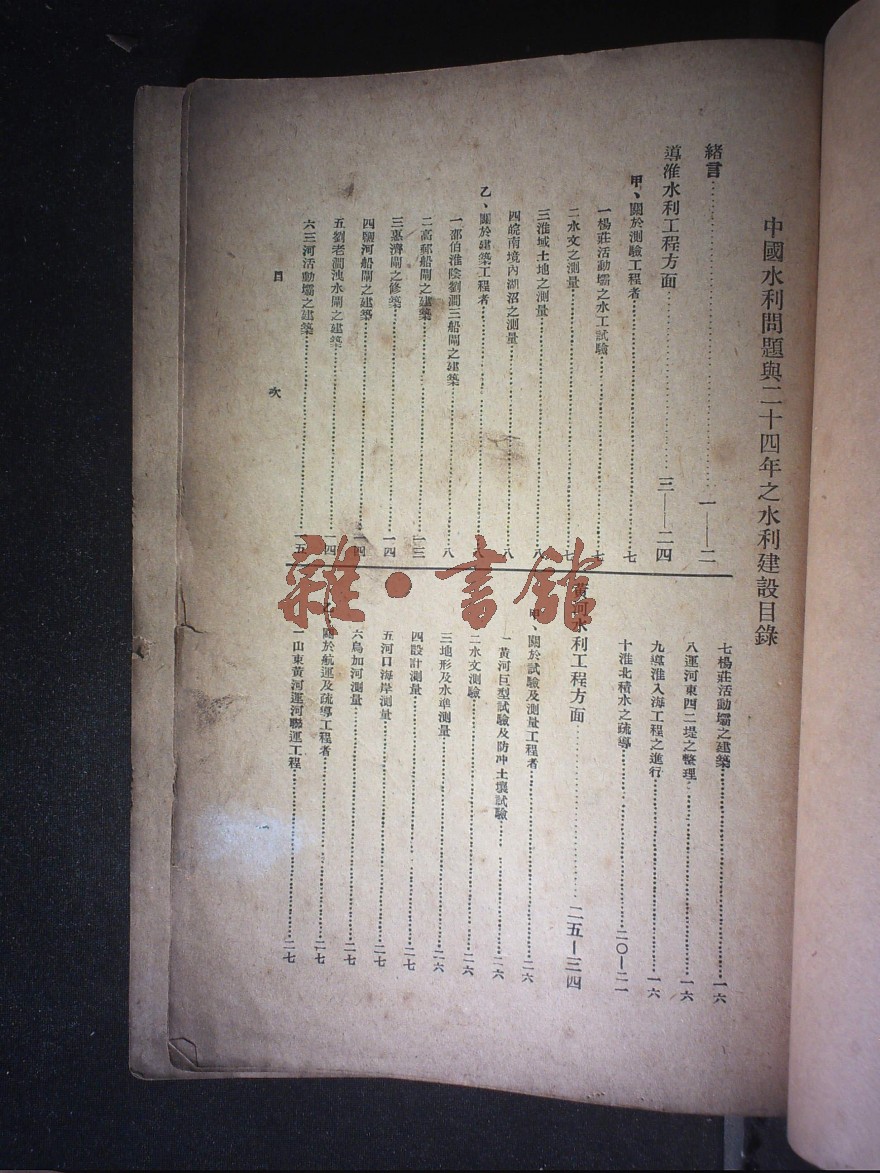 中國水利問題與二十四年之水利建設目錄
緒言 一——二
導淮水利工程方面 三——二四
甲、關於測驗工程者 七
一楊莊活動壩之水工試驗 七
二水文之測量 七
三淮域土地之測量 八
四皖南境內湖沼之測量 八
乙、關於建築工程者 八
一邵伯淮陰劉澗三船閘之建築 八
二高郵船閘之建築 一三
三惠濟閘之修築 一四
四鹽河船閘之建築 一四
五劉老澗洩水閘之建築 一四
六三河活動壩之建築 一五
七楊莊活動壩之建築 一六
八運河東西二堤之整理 一六
九導淮入海工程之進行 一六
十淮北積水之疏導 二〇—二一
黃河水利工程方面 二五—三四
甲、關於試驗及測量工程者 二六
一黃河巨型試驗及防冲土壤試驗 二六
二水文測驗 二六
三地形及水準測量 二六
四設計測量 二七
五河口海岸測量 二七
六烏加河測量 二七
乙、關於航運及疏導工程者 二七
一山東黃河運河聯運工程 二七
目次
雜·書館